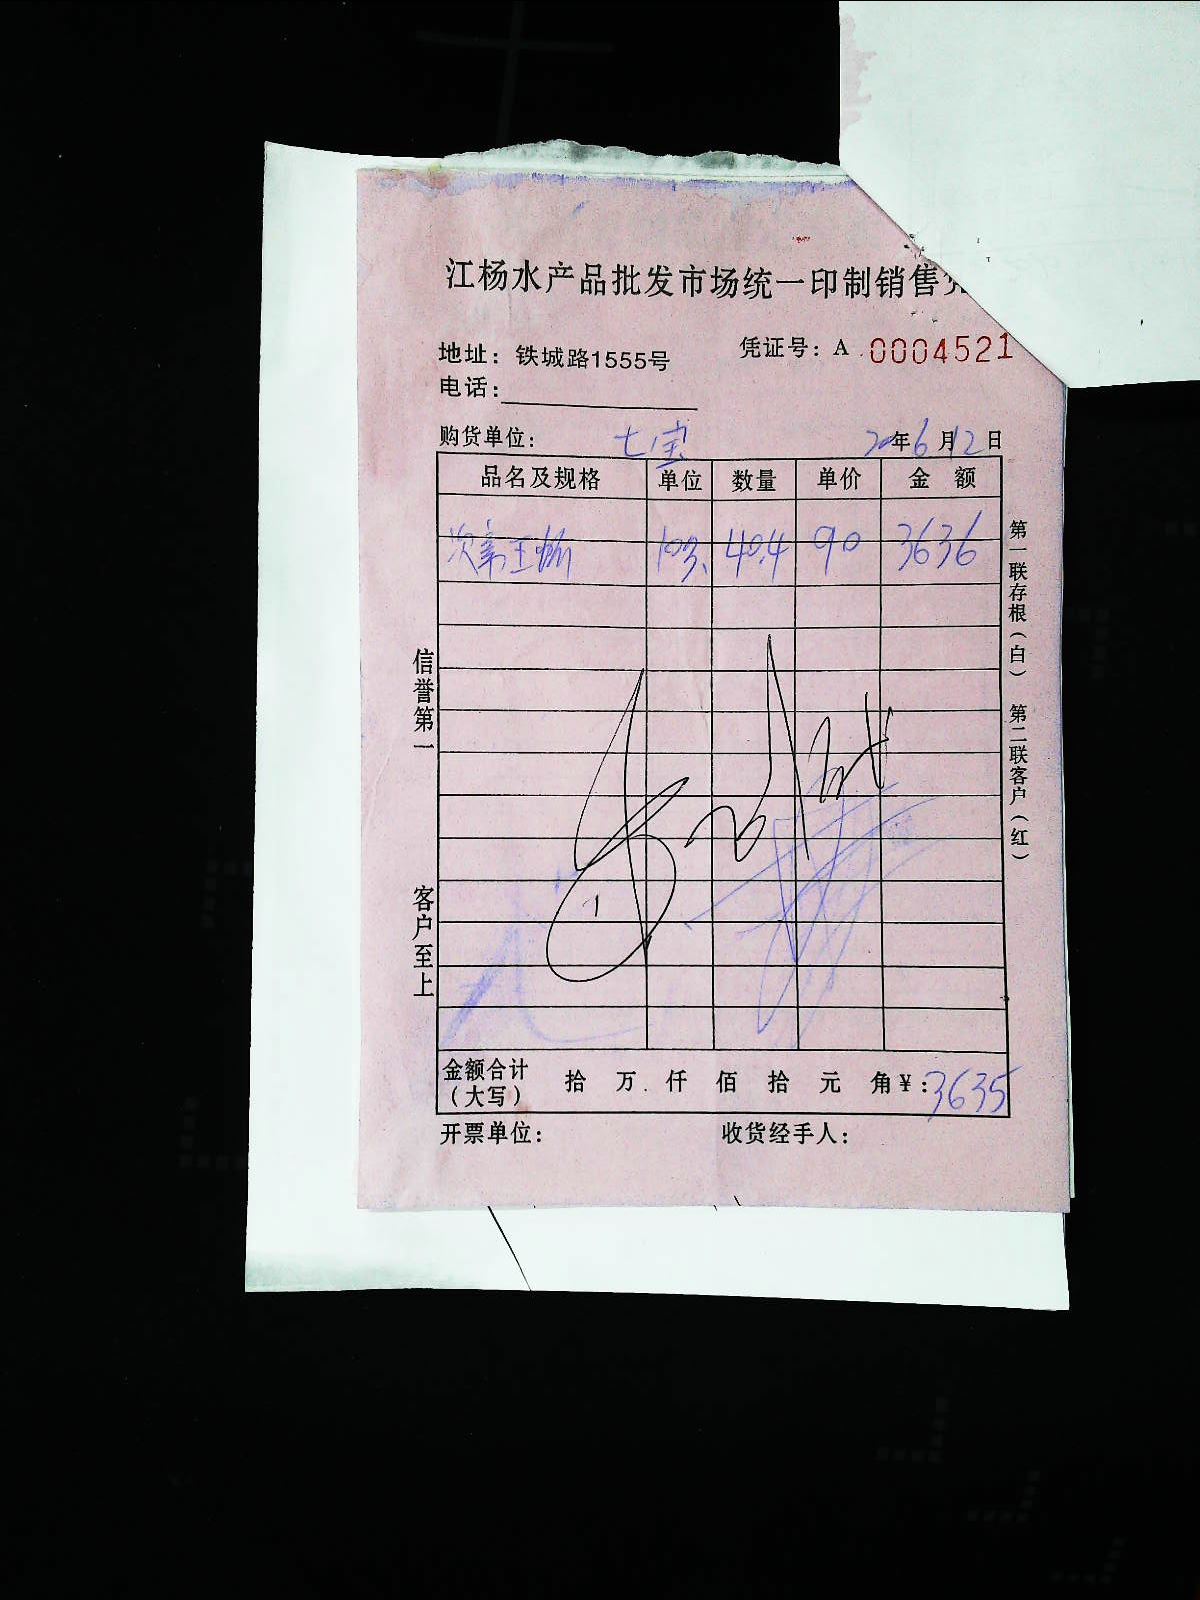 江杨水产品批发市场统一印制销售凭
地址：铁城路1555号
凭证号：A 0004521
电话：
购货单位： 七宝 20年6月12日
品名及规格 单位 数量 单价 金额
王 103、 40.4 90 3636
信誉第一
客户至上
第一联存根（白） 第二联客户（红）
金额合计 拾 万 仟 佰 拾 元 角￥：3635
（大写）
开票单位： 收货经手人：